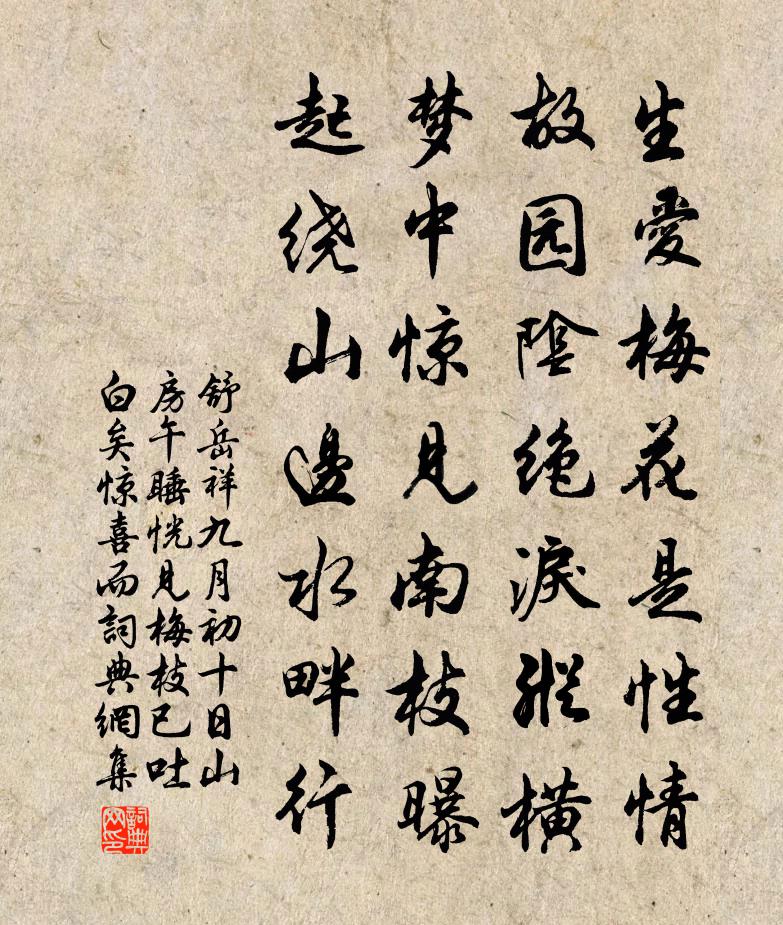 生愛梅花是性情
故园陰绝淚縱橫
梦中惊見南枝曝
起绕山邊水畔行
舒岳祥九月初十日山
房午睡恍見梅枝已吐
白矣惊喜而詞典網集
詞典
网印